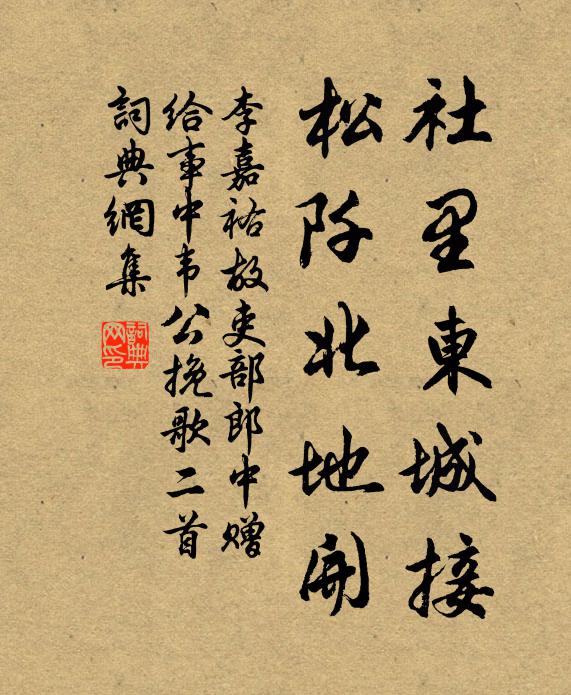 社里東城接
松阡北地開
李嘉祐故吏部郎中赠
给事中韦公挽歌二首
詞典網集
詞典
网印